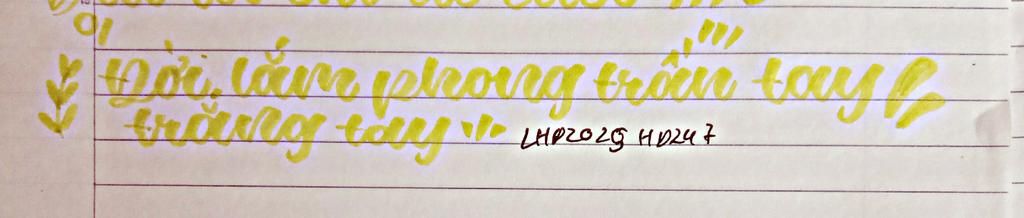 Đời, lắm phong trần tay
trắng tay LHP2029 HD247